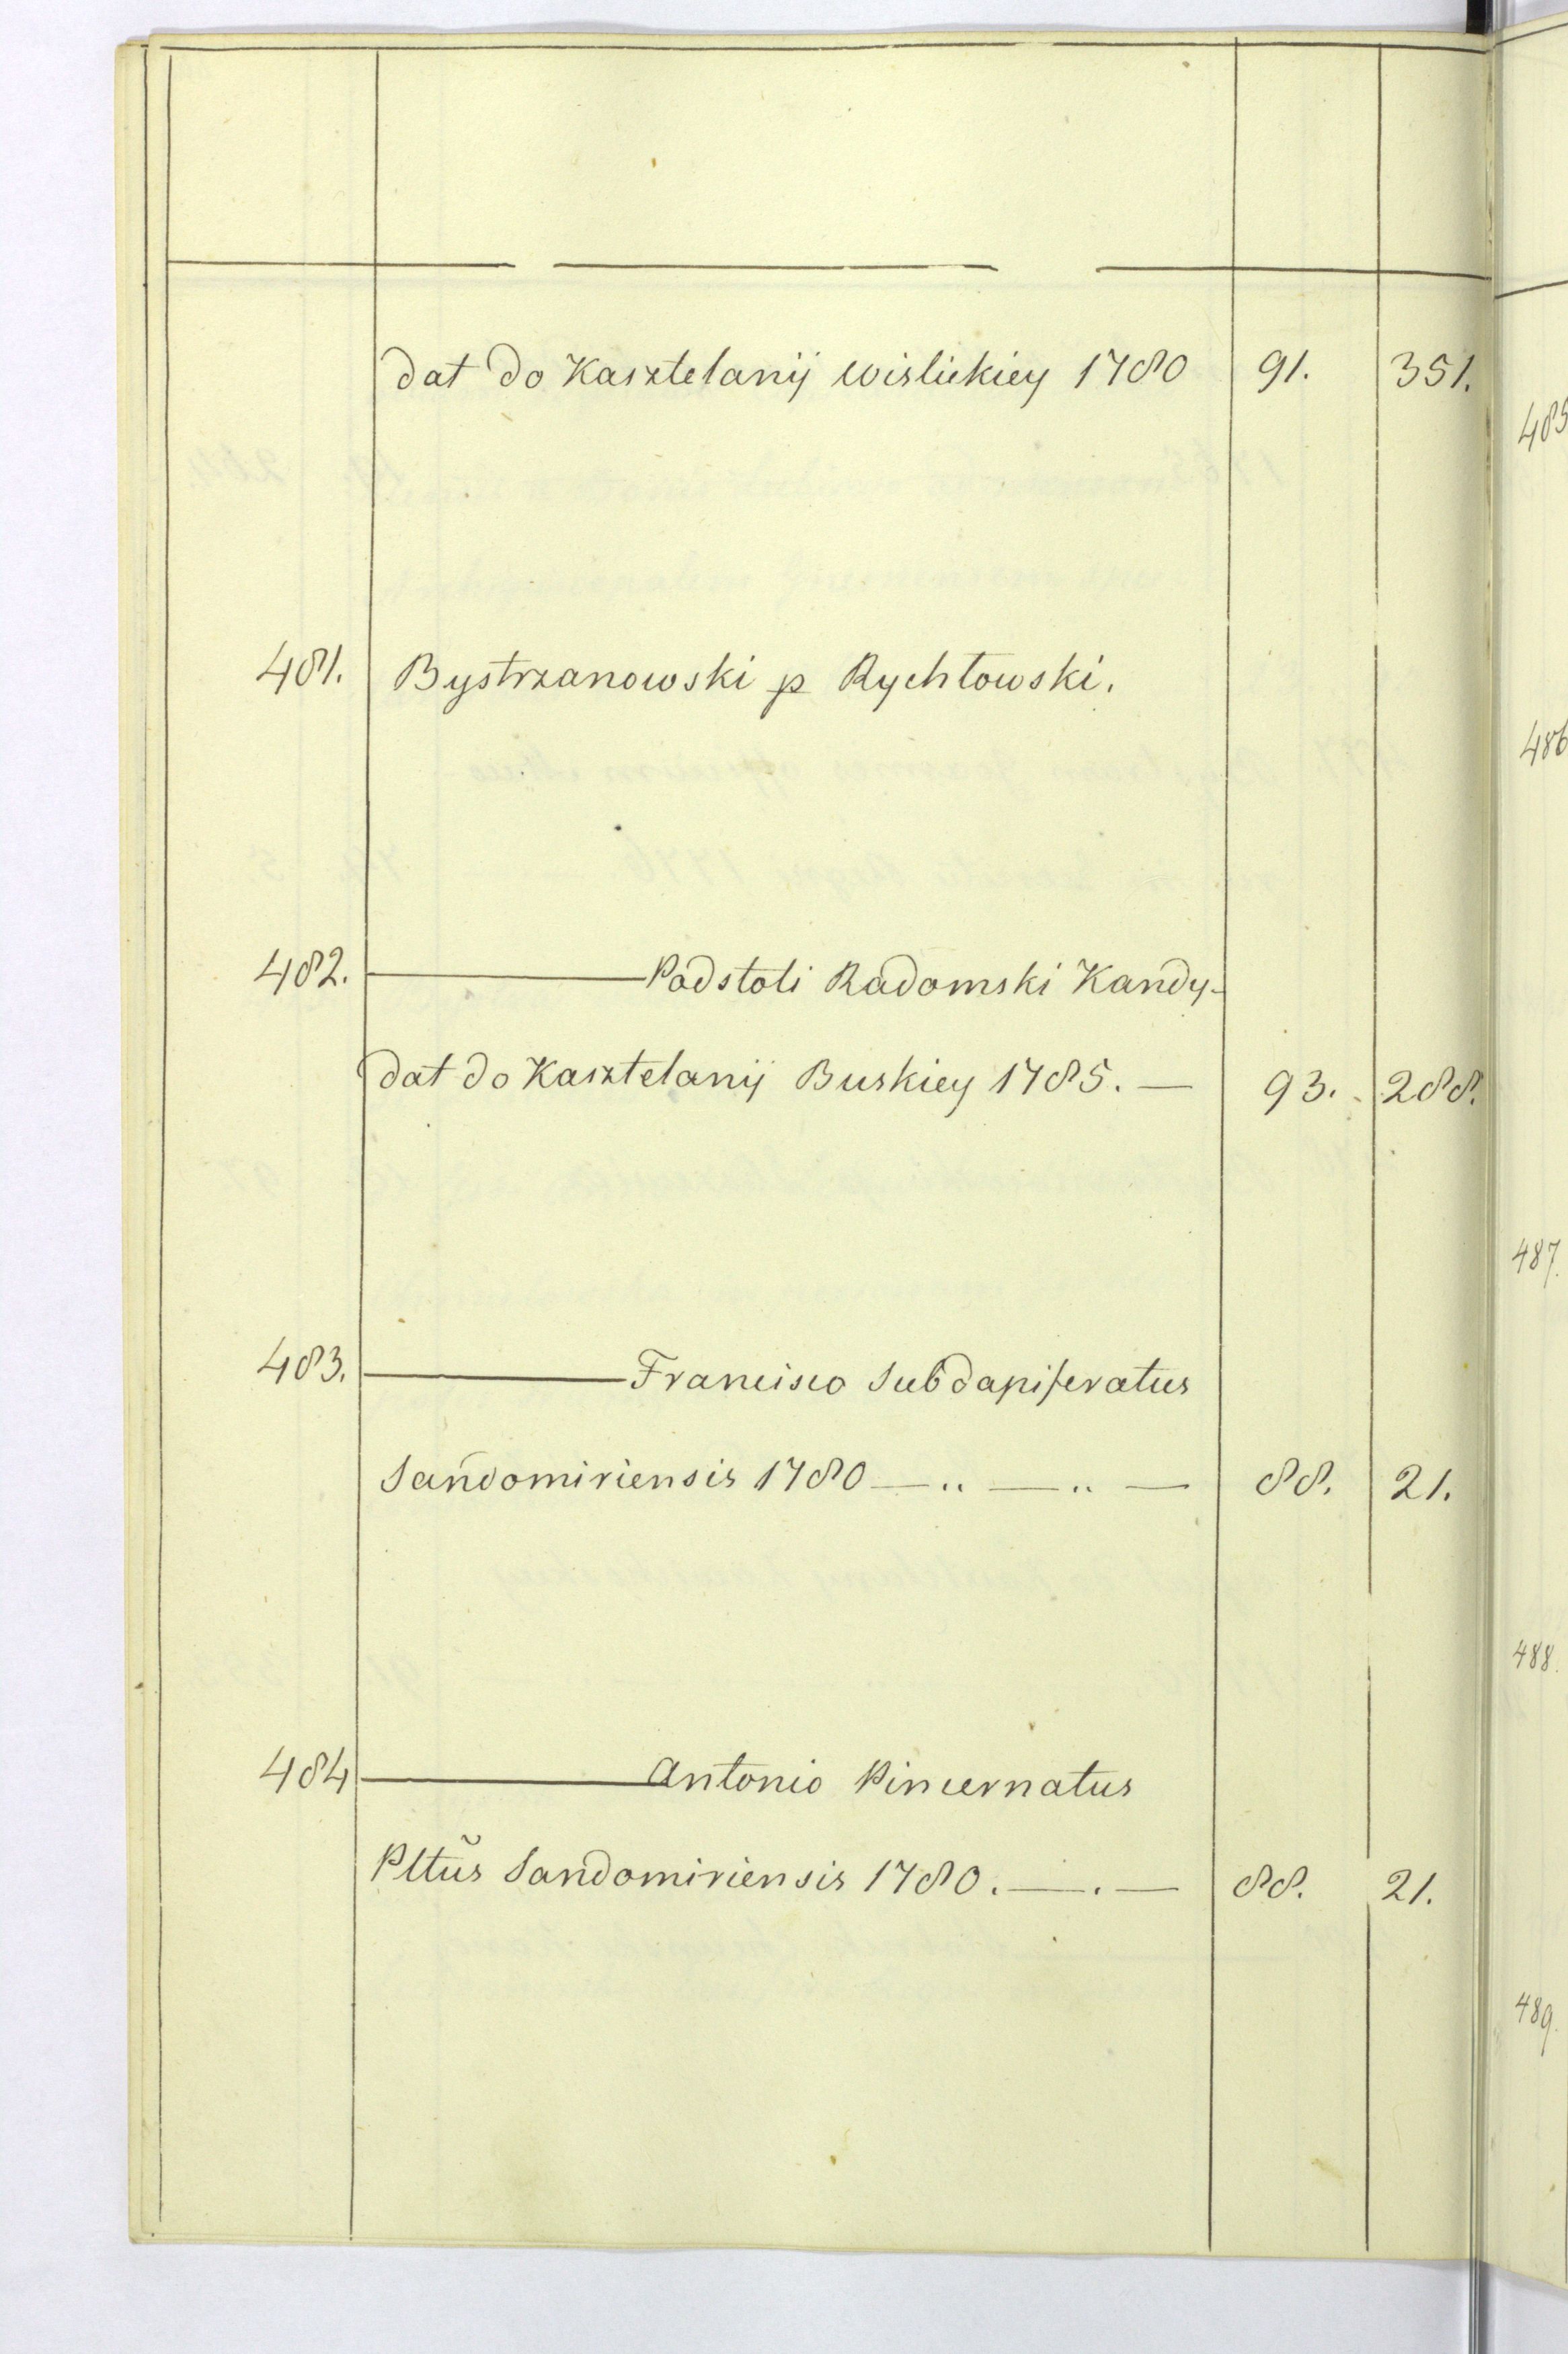 dat do Kasztelanij Wislickiey 1780 91. 351.
481. Bystrzanowski p Rychłowski.
482. ——— Podstoli Radomski Kandy-
dat do Kasztelanij Buskiey 1785. — 93. 288.
483. ——— Francisco Subdapiferatus
Sandomiriensis 1780 — .. — .. — 88. 21.
484 ——— Antonio Pincernatus
Pltũs Sandomiriensis 1780. — . — 88. 21.
485
486
487.
488.
489.